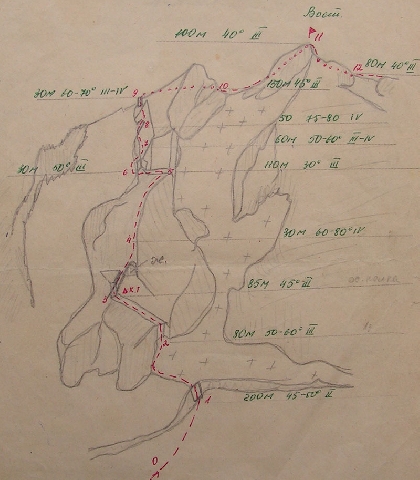 Вост.
11
400м 40° III
12 80м 40° III
10
150м 45° III
30м 60-70° III-IV 9
8
50 75-80 IV
7
60м 50-60° III-IV
110м 30° III
6 5
4
30м 60-80° IV
3
85м 45° III
2
80м 50-60° III
1
200м 45-50° II
0